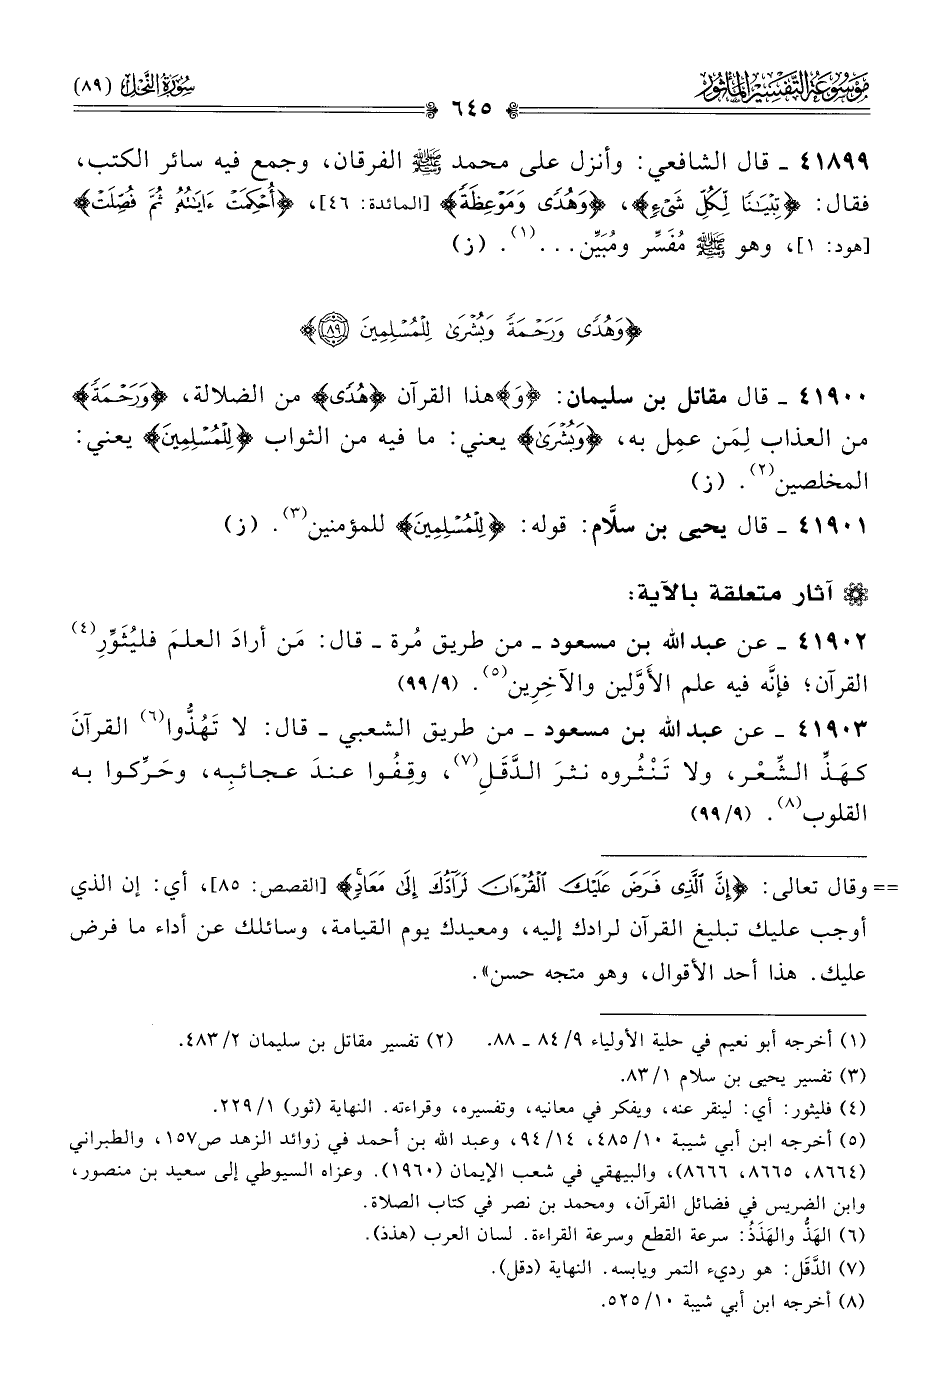 موسوعة التفسير المأثور
سورة النحل (٨٩)
٦٤٥
٤١٨٩٩ ـ قال الشافعي: وأنزل على محمد ﷺ الفرقان، وجمع فيه سائر الكتب،
فقال: ﴿تِبْيَٰنًا لِّكُلِّ شَىْءٍ﴾، ﴿وَهُدًى وَمَوْعِظَةً﴾ [المائدة: ٤٦]، ﴿أُحْكِمَتْ ءَايَٰتُهُۥ ثُمَّ فُصِّلَتْ﴾
[هود: ١]، وهو ﷺ مُفَسِّر ومُبَيِّن...(١). (ز)
﴿وَهُدًى وَرَحْمَةً وَبُشْرَىٰ لِلْمُسْلِمِينَ ٨٩﴾
٤١٩٠٠ ـ قال مقاتل بن سليمان: ﴿وَ﴾هذا القرآن ﴿هُدًى﴾ من الضلالة، ﴿وَرَحْمَةً﴾
من العذاب لِمَن عمِل به، ﴿وَبُشْرَىٰ﴾ يعني: ما فيه من الثواب ﴿لِلْمُسْلِمِينَ﴾ يعني:
المخلصين(٢). (ز)
٤١٩٠١ ـ قال يحيى بن سلَّام: قوله: ﴿لِلْمُسْلِمِينَ﴾ للمؤمنين(٣). (ز)
آثار متعلقة بالآية:
٤١٩٠٢ ـ عن عبد الله بن مسعود ـ من طريق مُرة ـ قال: مَن أرادَ العلمَ فليُثَوِّرِ(٤)
القرآن؛ فإنَّه فيه علم الأَوَّلين والآخِرِين(٥). (٩٩/٩)
٤١٩٠٣ ـ عن عبد الله بن مسعود ـ من طريق الشعبي ـ قال: لا تَهُذُّوا(٦) القرآنَ
كهَذِّ الشِّعْر، ولا تَنْثُروه نثرَ الدَّقَلِ(٧)، وقِفُوا عندَ عجائبِه، وحَرِّكوا به
القلوب(٨). (٩٩/٩)
== وقال تعالى: ﴿إِنَّ ٱلَّذِى فَرَضَ عَلَيْكَ ٱلْقُرْءَانَ لَرَآدُّكَ إِلَىٰ مَعَادٍ﴾ [القصص: ٨٥]، أي: إن الذي
أوجب عليك تبليغ القرآن لرادك إليه، ومعيدك يوم القيامة، وسائلك عن أداء ما فرض
عليك. هذا أحد الأقوال، وهو متجه حسن».
(١) أخرجه أبو نعيم في حلية الأولياء ٩/ ٨٤ ـ ٨٨. (٢) تفسير مقاتل بن سليمان ٢/ ٤٨٣.
(٣) تفسير يحيى بن سلام ١/ ٨٣.
(٤) فليثور: أي: لينقر عنه، ويفكر في معانيه، وتفسيره، وقراءته. النهاية (ثور) ١/ ٢٢٩.
(٥) أخرجه ابن أبي شيبة ١٠/ ٤٨٥، ١٤/ ٩٤، وعبد الله بن أحمد في زوائد الزهد ص١٥٧، والطبراني
(٨٦٦٤، ٨٦٦٥، ٨٦٦٦)، والبيهقي في شعب الإيمان (١٩٦٠). وعزاه السيوطي إلى سعيد بن منصور،
وابن الضريس في فضائل القرآن، ومحمد بن نصر في كتاب الصلاة.
(٦) الهَذُّ والهَذَذُ: سرعة القطع وسرعة القراءة. لسان العرب (هذذ).
(٧) الدَّقَل: هو رديء التمر ويابسه. النهاية (دقل).
(٨) أخرجه ابن أبي شيبة ١٠/ ٥٢٥.